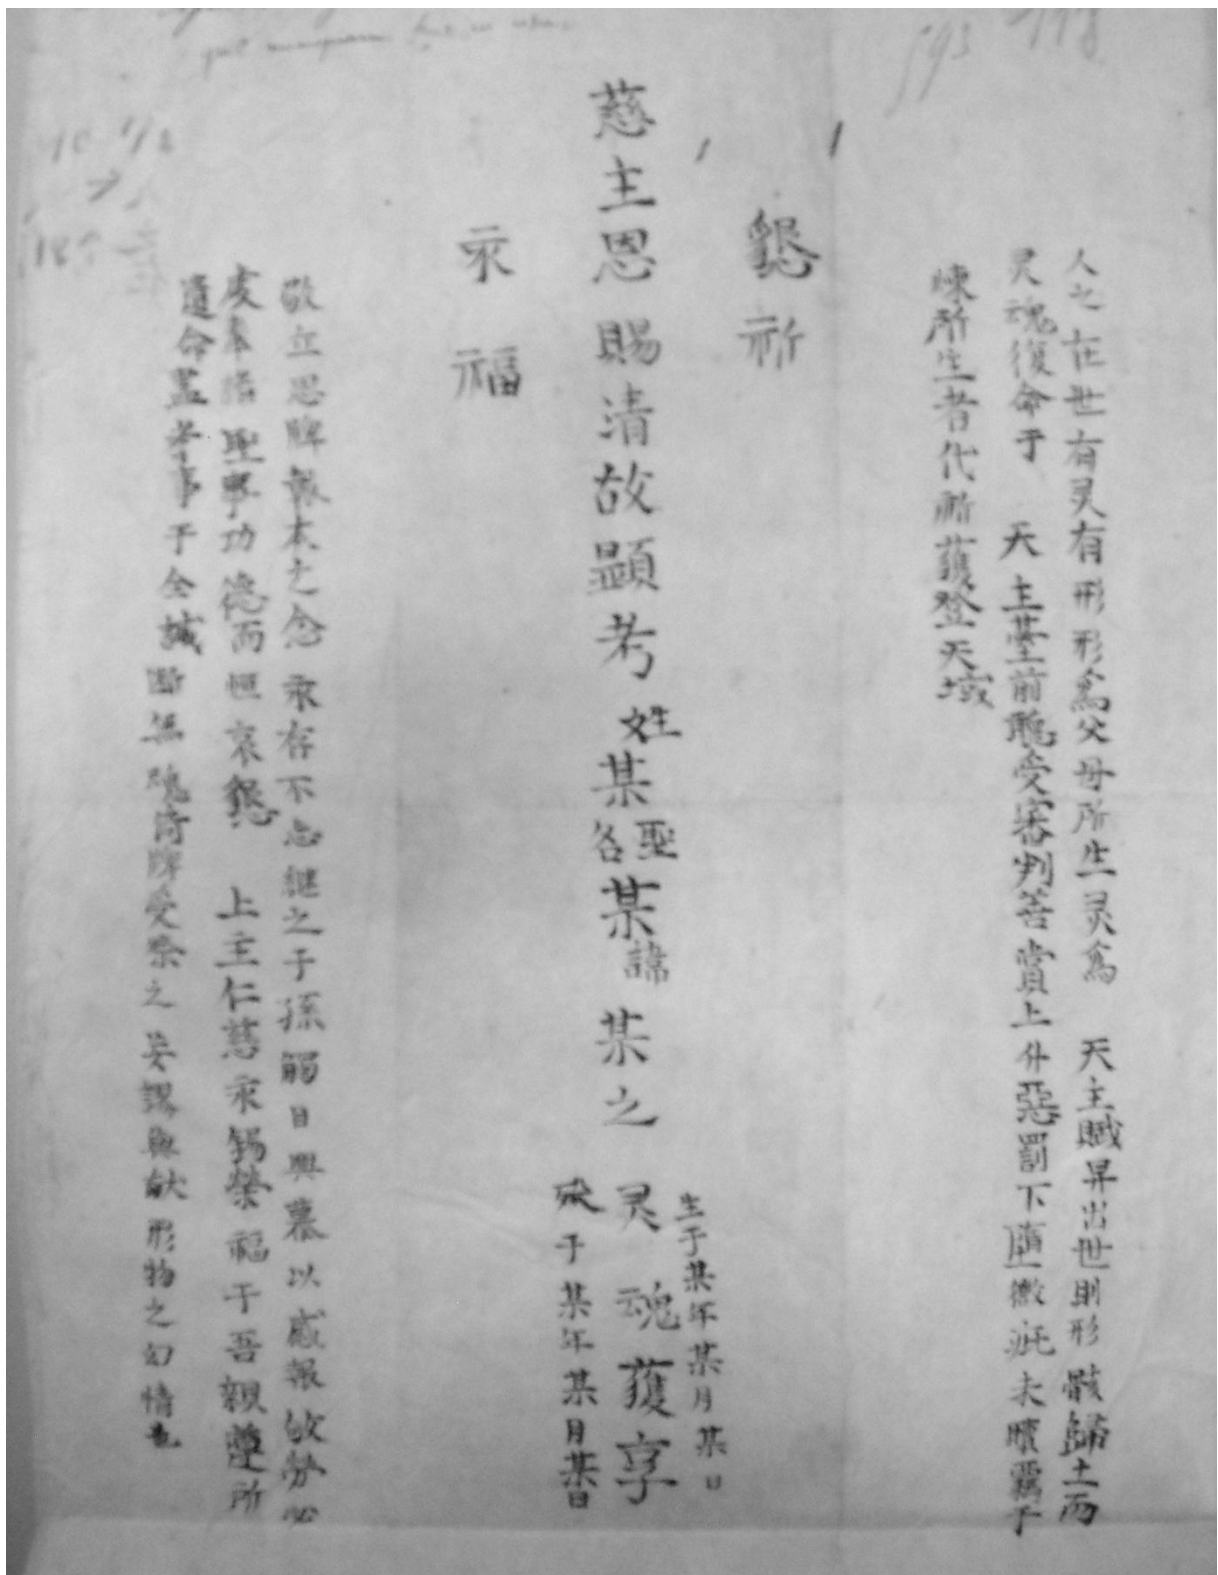 人之在世有灵有形形為父母所生灵為 天主賦畀出世則形骸歸土而
灵魂復命于 天主臺前聽受審判善賞上升惡罰下墮微疵未贖羈于
煉所生者代祈蒦登天域
懇祈
慈主恩賜清故顯考姓某聖名某諱某之灵魂蒦享
生于某年某月某日
歿于某年某月某日
永福
敬立思牌報本之念永存不忘継之于孫觸目興慕以感報劬勞
虔奉 聖事功德而恒哀懇 上主仁慈永錫榮福于吾親遵所
遺命盡孝事于全誠
斷無魂倚牌受祭之妄謬與献形物之幻情也
593